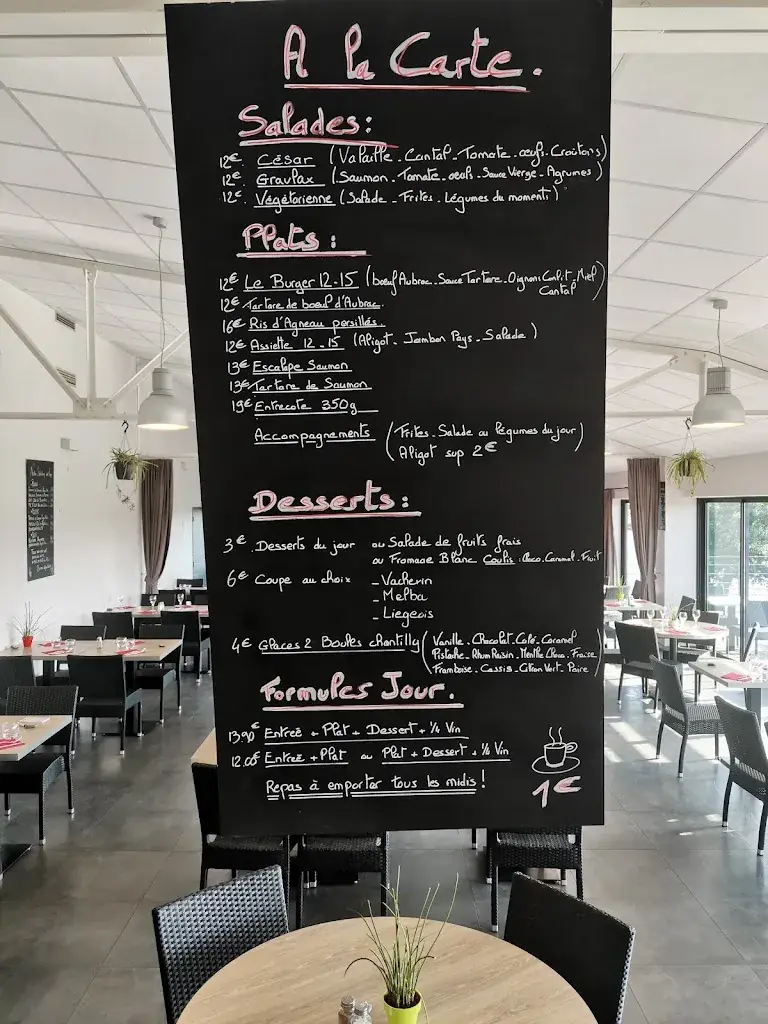 A la Carte.
Salades:
12€ César (Volaille - Cantal - Tomate - œufs - Croûtons)
12€ Gravlax (Saumon - Tomate - œufs - Sauce Vierge - Agrumes)
12€ Végétarienne (Salade - Frites - Légumes du moment)
Plats:
12€ Le Burger 12-15 (bœuf Aubrac - Sauce Tartare - Oignons Confit - Miel
Cantal)
12€ Tartare de bœuf d'Aubrac.
16€ Ris d'Agneau persillés.
12€ Assiette 12-15 (Aligot - Jambon Pays - Salade)
13€ Escalope Saumon
13€ Tartare de Saumon
19€ Entrecote 350g
Accompagnements (Frites - Salade ou légumes du jour)
Aligot sup 2€
Desserts:
3€ Desserts du jour ou Salade de fruits frais
ou Fromage Blanc Coulis: Choco - Caramel - Fruit
6€ Coupe au choix - Vacherin
- Melba
- Liegeois
4€ Glaces 2 Boules chantilly (Vanille - Chocolat - Café - Caramel
Pistache - Rhum Raisin - Menthe Choco - Fraise
Framboise - Cassis - Citron Vert - Poire)
Formules Jour.
13.90€ Entreé + Plat + Dessert + 1/4 Vin
12.00€ Entreé + Plat ou Plat + Dessert + 1/4 Vin
Repas à emporter tous les midis!
1€